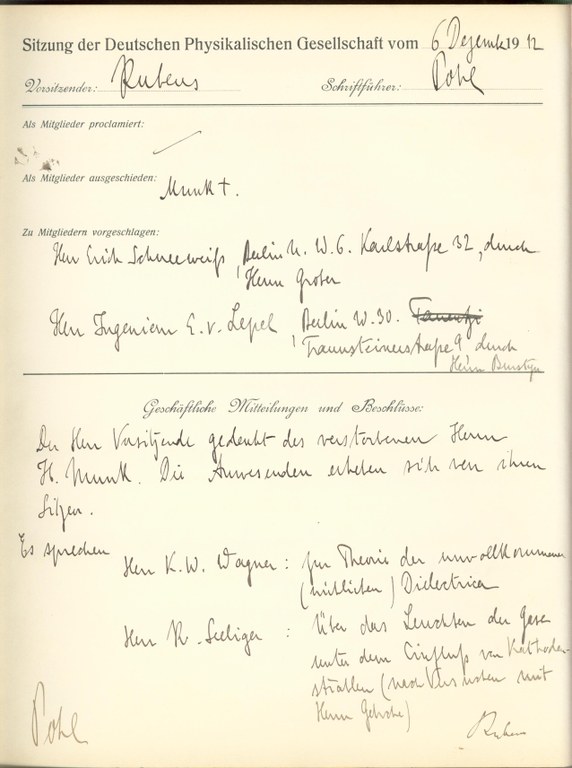 Sitzung der Deutschen Physikalischen Gesellschaft vom 6 Dezemb. 1912
Vorsitzender: Rubens Schriftführer: Pohl
Als Mitglieder proclamiert:
Als Mitglieder ausgeschieden: Munk †.
Zu Mitgliedern vorgeschlagen:
Herr Erich Schneeweiß, Berlin N. W. 6. Karlstraße 32, durch
Herrn
Herr Ingenieur E. v. Lepel, Berlin W. 30.
Traunsteinerstraße 9 durch
Herrn Burstyn
Geschäftliche Mitteilungen und Beschlüsse:
Der Herr Vorsitzende gedenkt des verstorbenen Herrn
H. Munk. Die Anwesenden erheben sich von ihren
Sitzen.
Es sprechen
Herr K. W. Wagner: zur Theorie der unvollkommenen
Dielectrica
Herr R. Seeliger: Über das Leuchten der Gase
unter dem Einfluß von Kathoden-
strahlen (nach Versuchen mit
Herrn Gehrcke)
Pohl Rubens